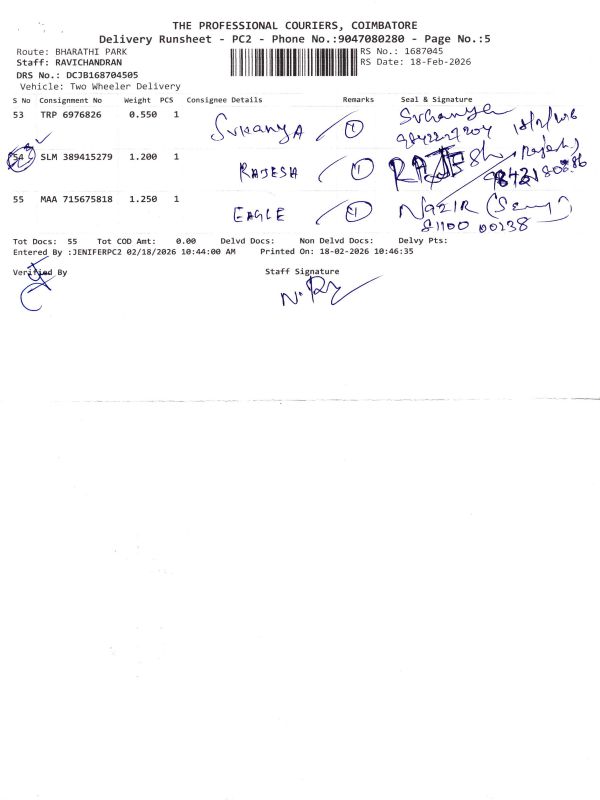 THE PROFESSIONAL COURIERS, COIMBATORE
Delivery Runsheet - PC2 - Phone No.:9047080280 - Page No.:5
Route: BHARATHI PARK
RS No.: 1687045
Staff: RAVICHANDRAN
RS Date: 18-Feb-2026
DRS No.: DCJB168704505
Vehicle: Two Wheeler Delivery
S No Consignment No Weight PCS Consignee Details Remarks Seal & Signature
53 TRP 6976826 0.550 1 SUKANYA 1 Sukanya
18/2/026
54 SLM 389415279 1.200 1 RAJESH 1 RAJESH (Rajesh)
55 MAA 715675818 1.250 1 EAGLE 1 NAZIR
81100 00238
Tot Docs: 55 Tot COD Amt: 0.00 Delvd Docs: Non Delvd Docs: Delvy Pts:
Entered By :JENIFERPC2 02/18/2026 10:44:00 AM Printed On: 18-02-2026 10:46:35
Verified By Staff Signature